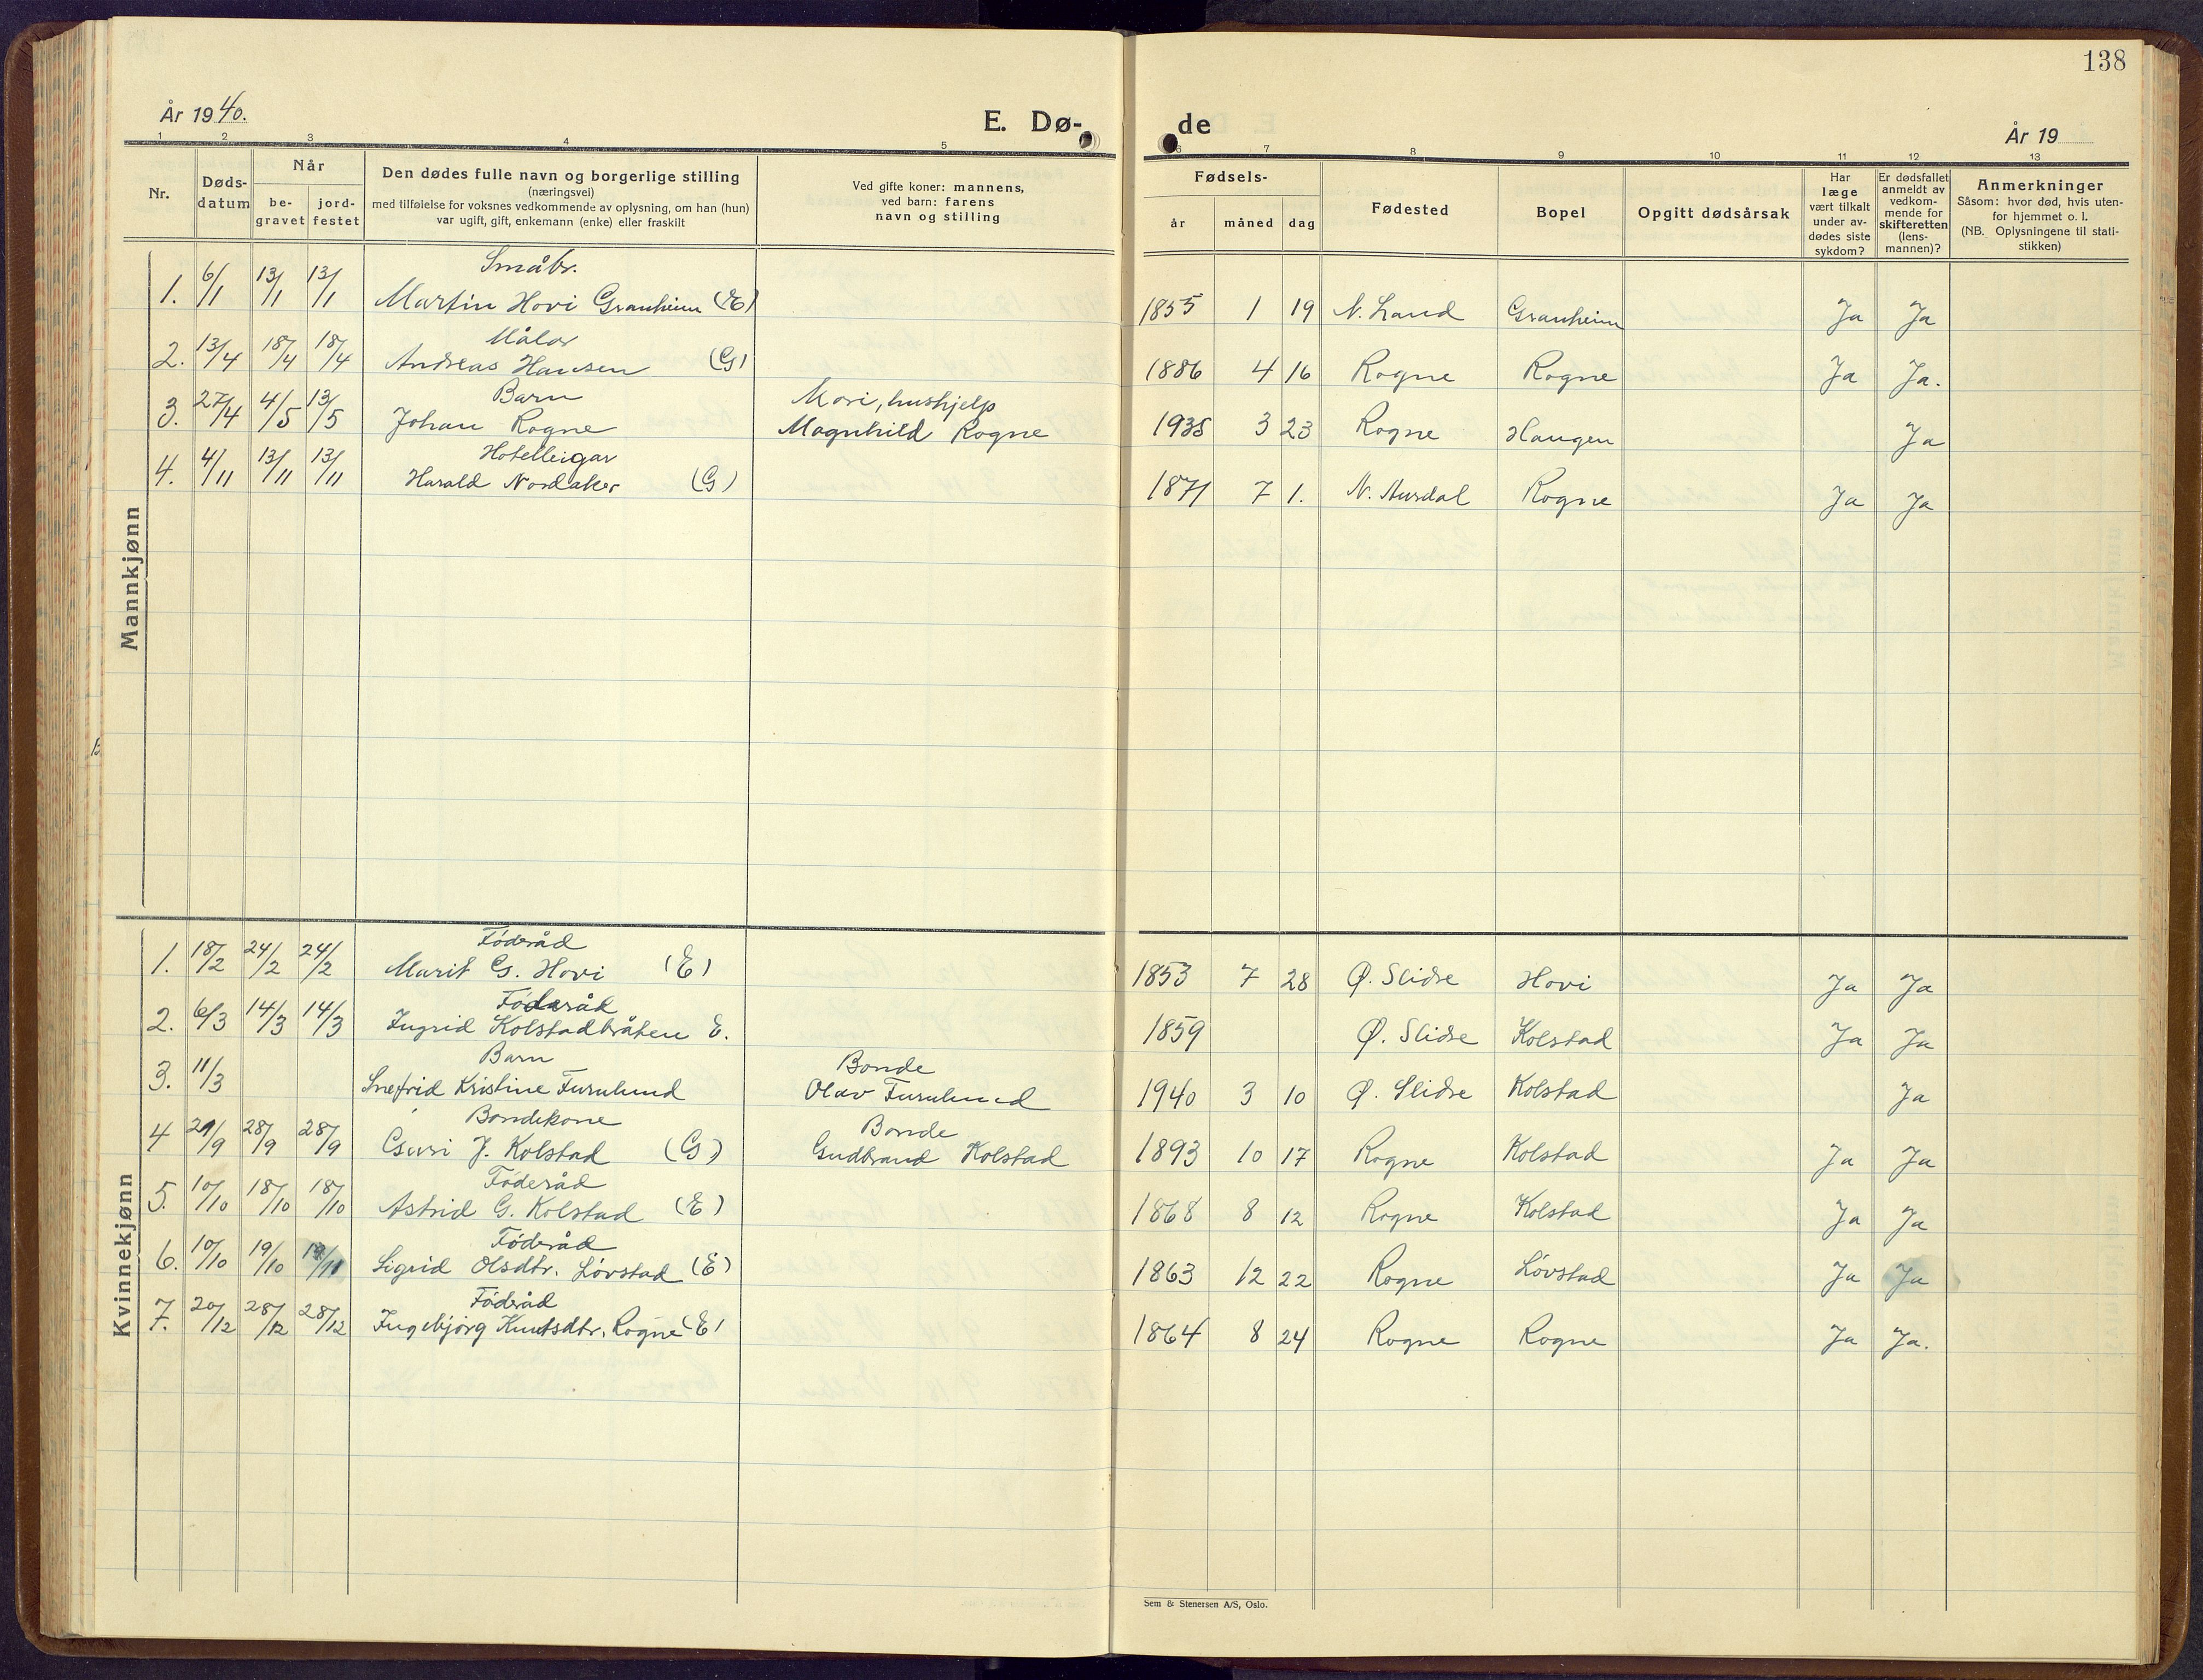 138
År 1940.
E. Dø-
de
År 19
1 2 3 4 5
6 7 8 9 10 11 12 13
Nr.
Døds-
datum
Når
be-
gravet
jord-
festet
Den dødes fulle navn og borgerlige stilling
(næringsvei)
med tilføielse for voksnes vedkommende av oplysning, om han (hun)
var ugift, gift, enkemann (enke) eller fraskilt
Ved gifte koner: mannens,
ved barn: farens
navn og stilling
Fødsels-
år måned dag
Fødested
Bopel
Opgitt dødsårsak
Har
læge
vært tilkalt
under av-
dødes siste
sykdom?
Er dødsfallet
anmeldt av
vedkom-
mende for
skifteretten
(lens-
mannen)?
Anmerkninger
Såsom: hvor død, hvis uten-
for hjemmet o. l.
(NB. Oplysningene til stati-
stikken)
Mannkjønn
Småbr.
1. 6/1 13/1 13/1 Martin Hovi Granheim (E) 1855 1 19 N. Land Granheim Ja Ja
Målar
2. 13/4 18/4 18/4 Andreas Hansen (G) 1886 4 16 Rogne Rogne Ja Ja.
Barn Mori, hushjelp
3. 27/4 4/5 13/5 Johan Rogne Magnhild Rogne 1938 3 23 Rogne Haugen Ja
Hotelleigar
4. 4/11 13/11 13/11 Harald Nordaker (G) 1871 7 1. N. Aurdal Rogne Ja Ja
Kvinnekjønn
Föderåd
1. 18/2 24/2 24/2 Marit G. Hovi (E) 1853 7 28 Ø. Slidre Hovi Ja Ja
Föderåd
2. 6/3 14/3 14/3 Ingrid Kolstadbråten E. 1859 Ø. Slidre Kolstad Ja Ja
Barn Bonde
3. 11/3 Snefrid Kristine Furulund Olav Furulund 1940 3 10 Ø. Slidre Kolstad Ja
Bondekone Bonde
4 /9 28/9 28/9 J. Kolstad (G) Gudbrand Kolstad 1893 10 17 Rogne Kolstad Ja Ja
Föderåd
5. 10/10 18/10 18/10 Astrid G. Kolstad (E) 1868 8 12 Rogne Kolstad Ja Ja
Föderåd
6. 10/10 19/10 19/ Sigrid Olsdtr. Lövstad (E) 1863 12 22 Rogne Lövstad Ja Ja
Föderåd
7. 20/12 28/12 28/12 Ingebjörg Knutsdtr. Rogne (E) 1864 8 24 Rogne Rogne Ja Ja.
Sem & Stenersen A/S, Oslo.